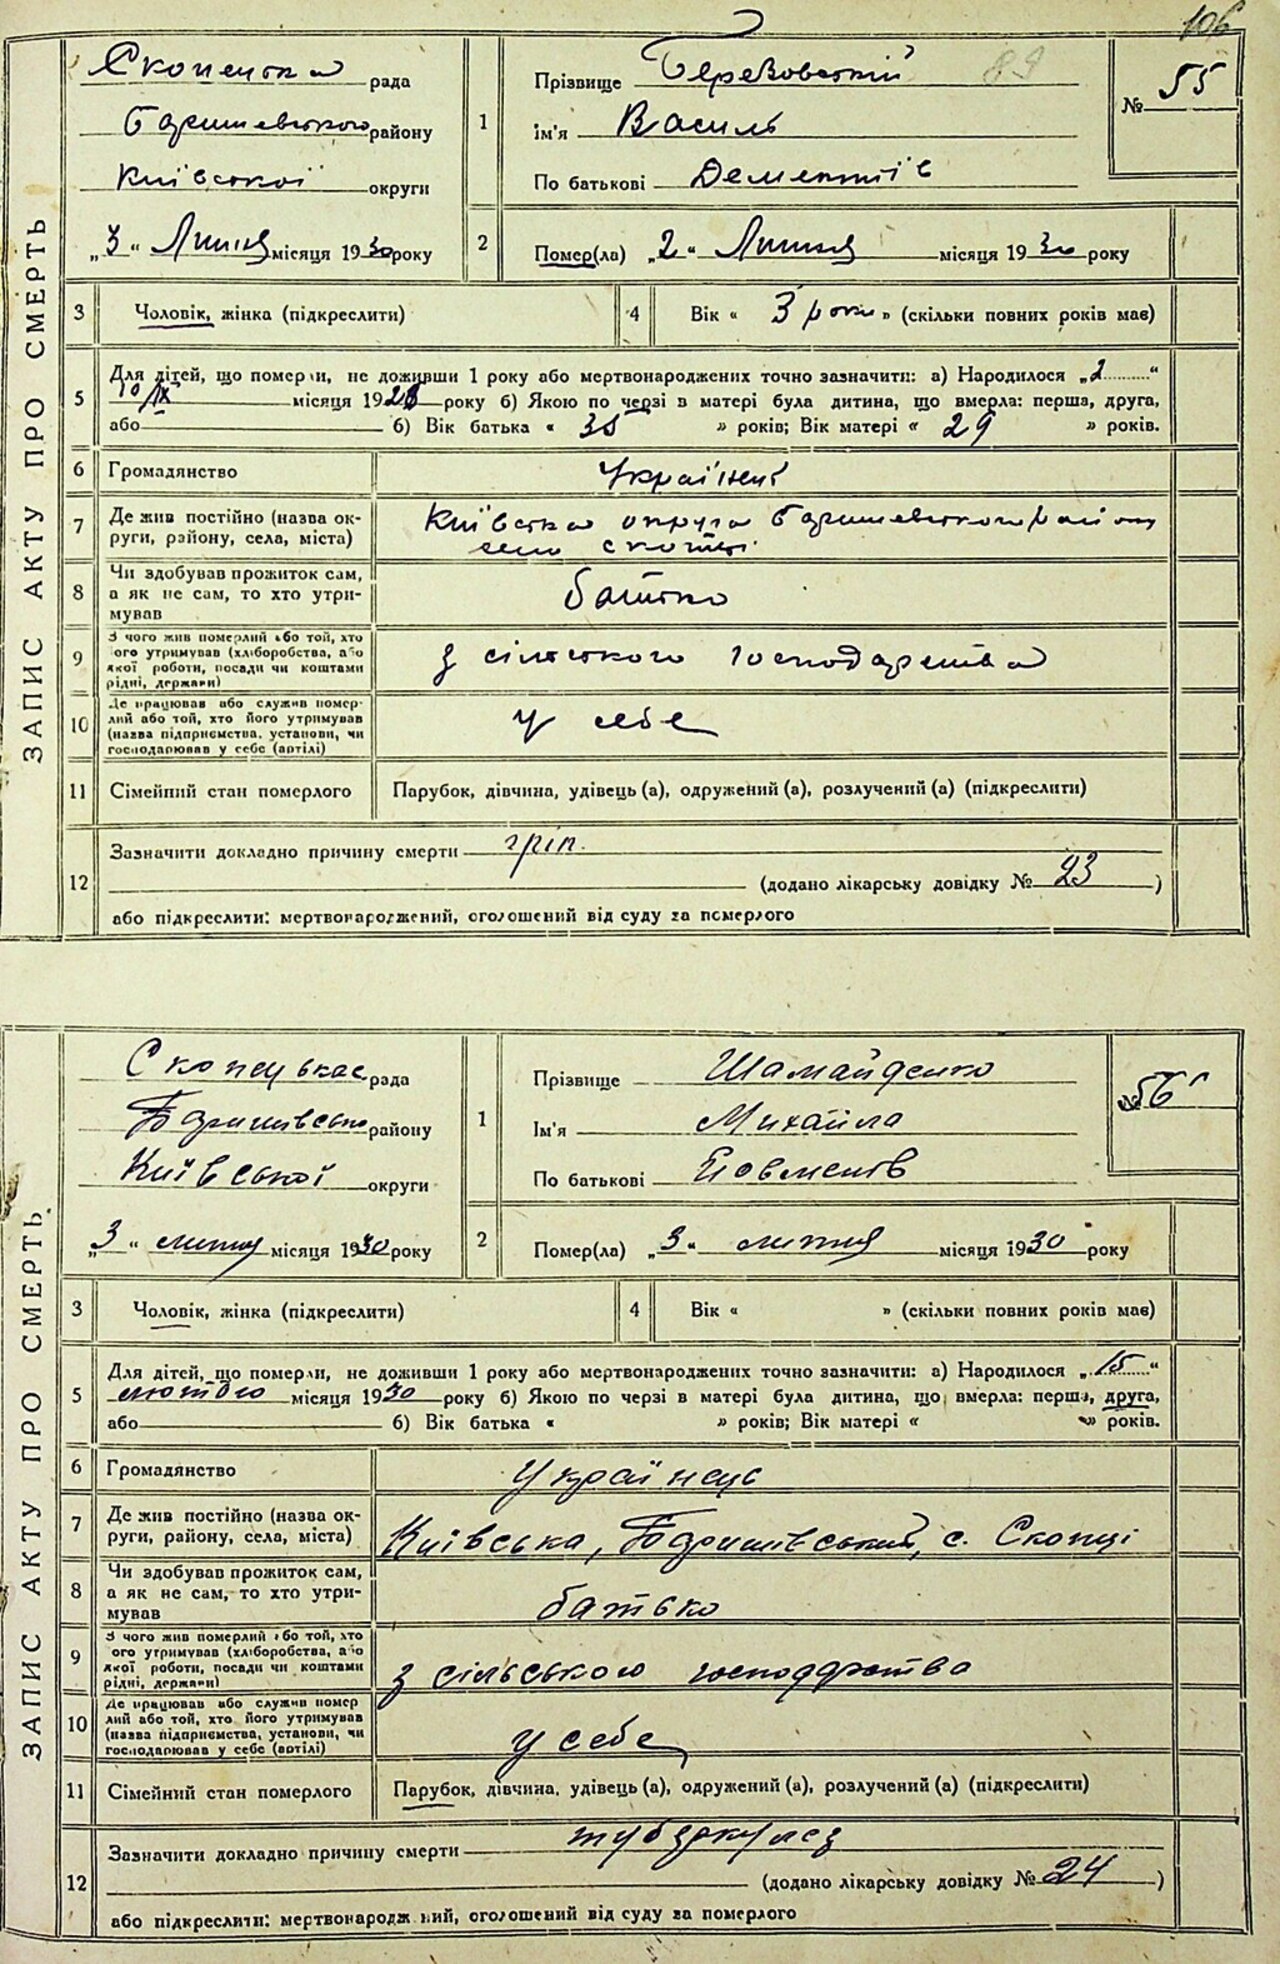 106
89
ЗАПИС АКТУ ПРО СМЕРТЬ
Скопецька рада
Баришевського району
Київської округи
„3“ Липня місяця 1930 року
1
Прізвище Березовський
Ім'я Василь
По батькові Дементіїв
№ 55
2
Помер(ла) „2“ Липня місяця 1930 року
3 Чоловік, жінка (підкреслити)
4 Вік « 3 роки » (скільки повних років має)
5 Для дітей, що померли, не доживши 1 року або мертвонароджених точно зазначити: а) Народилося „2“
10/IX місяця 1928 року б) Якою по черзі в матері була дитина, що вмерла: перша, друга,
або б) Вік батька « 35 » років; Вік матері « 29 » років.
6 Громадянство Українець
7 Де жив постійно (назва округи, району, села, міста) Київська округа Баришевського району
село Скопці
8 Чи здобував прожиток сам,
а як не сам, то хто утри-
мував
батько
9 З чого жив померлий або той, хто
ого утримував (хліборобства, або
якої роботи, посади чи коштами
рідні, держави)
з сільського господарства
10 Де працював або служив помер-
лий або той, хто його утримував
(назва підприємства, установи, чи
господарював у себе (артілі)
у себе
11 Сімейний стан померлого Парубок, дівчина, удівець (а), одружений (а), розлучений (а) (підкреслити)
12 Зазначити докладно причину смерти гріп.
(додано лікарську довідку № 23)
або підкреслити: мертвонароджений, оголошений від суду за померлого
ЗАПИС АКТУ ПРО СМЕРТЬ
Скопецькає рада
Баришівсько району
Київської округи
„3“ липня місяця 1930 року
1
Прізвище Шамайденко
Ім'я Михайла
По батькові
№ 56
2
Помер(ла) „3“ липня місяця 1930 року
3 Чоловік, жінка (підкреслити)
4 Вік « » (скільки повних років має)
5 Для дітей, що померли, не доживши 1 року або мертвонароджених точно зазначити: а) Народилося „15“
лютого місяця 1930 року б) Якою по черзі в матері була дитина, що вмерла: перша, друга,
або б) Вік батька « » років; Вік матері « » років.
6 Громадянство Українець
7 Де жив постійно (назва ок-
руги, району, села, міста)
Київська, Баришівський, с. Скопці
8 Чи здобував прожиток сам,
а як не сам, то хто утри-
мував
батько
9 З чого жив померлий або той, хто
ого утримував (хліборобства, або
якої роботи, посади чи коштами
рідні, держави)
з сільського господарства
10 Де працював або служив помер
лий або той, хто його утримував
(назва підприємства, установи, чи
господарював у себе (артілі)
у себе
11 Сімейний стан померлого Парубок, дівчина, удівець (а), одружений (а), розлучений (а) (підкреслити)
12 Зазначити докладно причину смерти туберкульоз
(додано лікарську довідку № 24)
або підкреслити: мертвонароджений, оголошений від суду за померлого